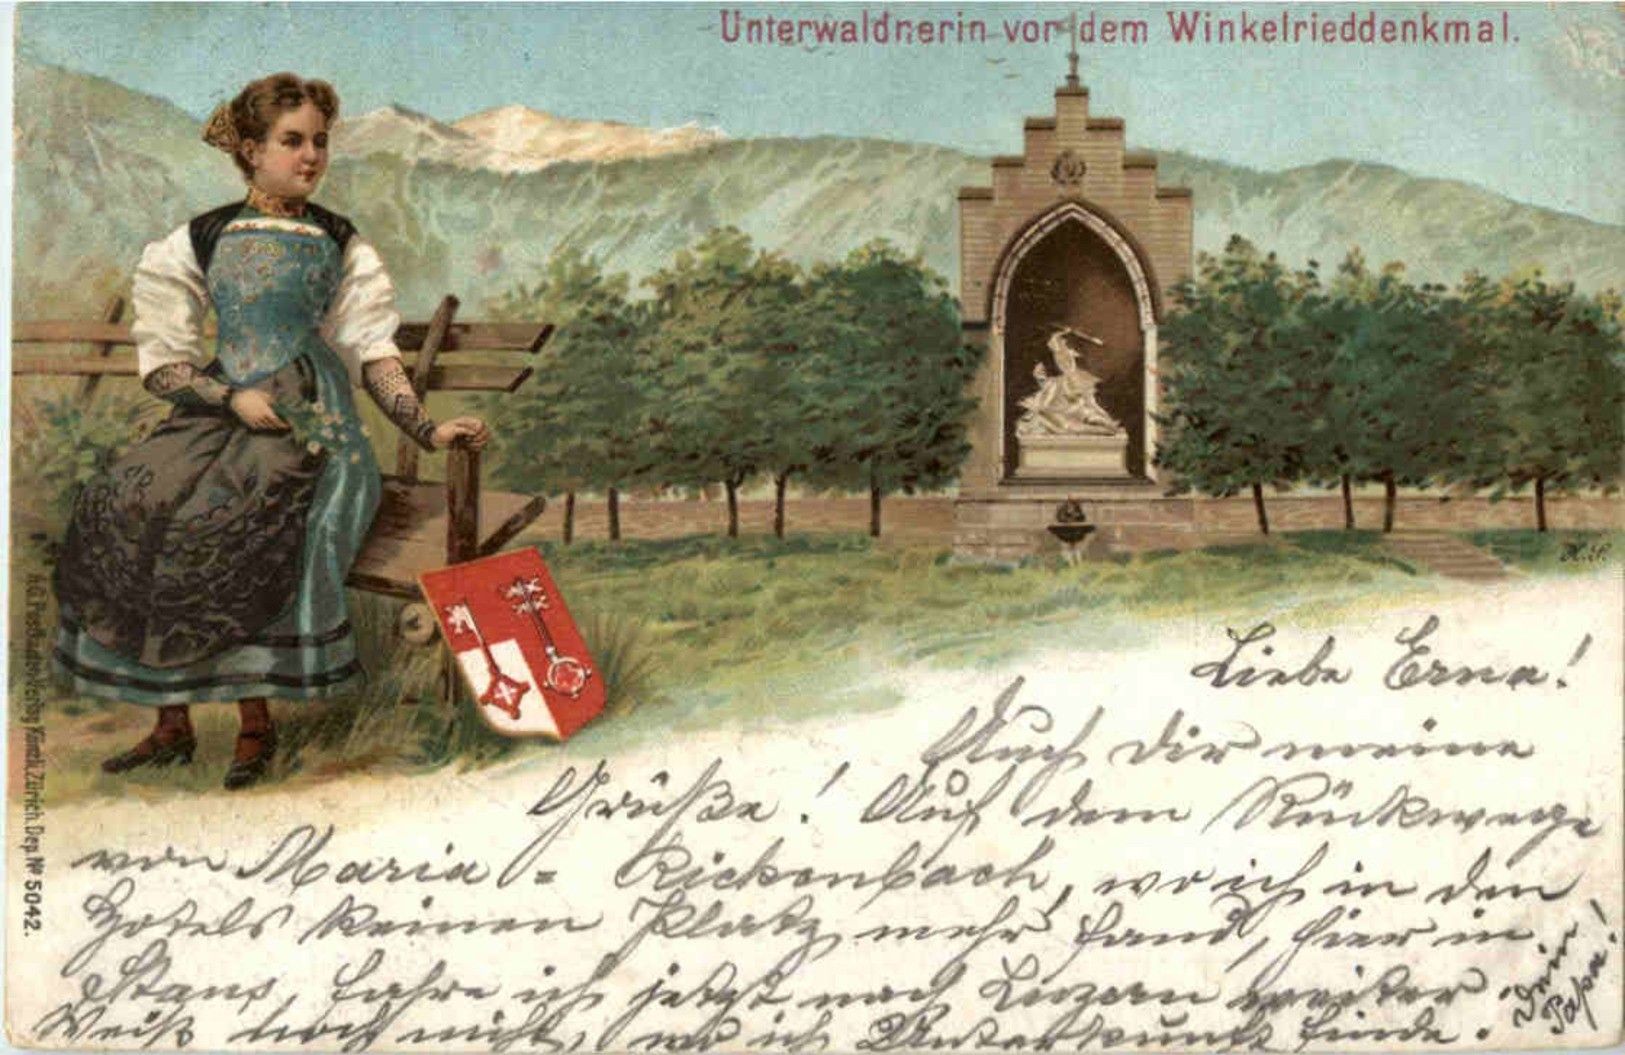 Unterwaldnerin vor dem Winkelrieddenkmal.
H.S.
Liebe Erna!
Auch Dir meine
Grüße! Auf dem Rückwege
von Maria-Rickenbach, wo ich in den
Hotels keinen Platz mehr fand, hier in
Stans, fahre ich jetzt nach Luzern weiter.
Weiß noch nicht, wo ich Unterkunft finde.
Dein
Papa!
Künzli, Zürich. Dep. No 5042.